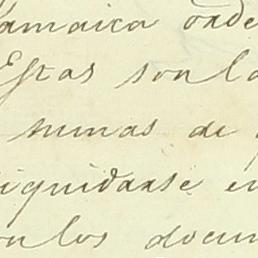 Jamaica orde
Estas son la
sumas de
iquidarse en
on los docum